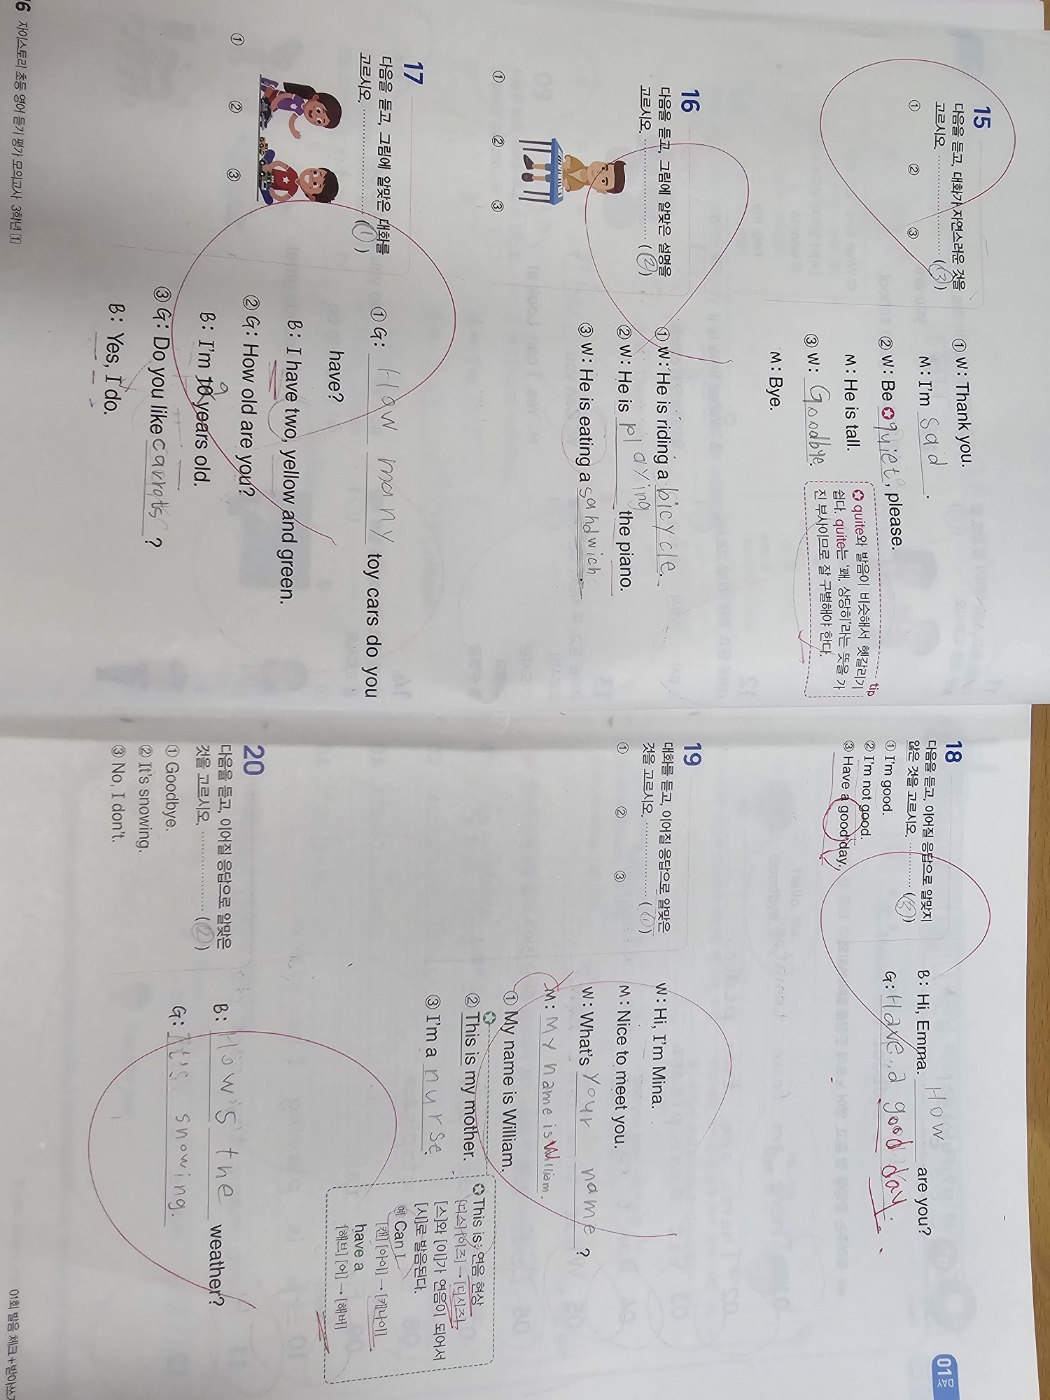 15
다음을 듣고, 대화가 자연스러운 것을
고르시오. (③)
① ② ③
① W: Thank you.
M: I'm sad.
② W: Be ✪quiet, please.
M: He is tall.
③ W: Goodbye.
M: Bye.
tip
✪ quite와 발음이 비슷해서 헷갈리기
쉽다. quite는 '꽤, 상당히'라는 뜻을 가
진 부사이므로 잘 구별해야 한다.
16
다음을 듣고, 그림에 알맞은 설명을
고르시오. (②)
① ② ③
① W: He is riding a bicycle.
② W: He is playing the piano.
③ W: He is eating a sandwich.
17
다음을 듣고, 그림에 알맞은 대화를
고르시오. (①)
① ② ③
① G: How many toy cars do you
have?
B: I have two, yellow and green.
② G: How old are you?
B: I'm years old.
③ G: Do you like ?
B: Yes, I do.
6 자이스토리 초등 영어 듣기 평가 모의고사 3학년 ①
01회
18
다음을 듣고, 이어질 응답으로 알맞지
않은 것을 고르시오. (③)
① I'm good.
② I'm not good.
③ Have a good day.
B: Hi, Emma. How are you?
G: Have a good day.
19
대화를 듣고, 이어질 응답으로 알맞은
것을 고르시오. (①)
① ② ③
W: Hi, I'm Mina.
M: Nice to meet you.
W: What's your name?
M: My name is William.
① My name is William.
② ✪This is my mother.
③ I'm a nurse.
✪ This is: 연음 현상
[디스] [이즈] → [디시즈]
[스]와 [이]가 연음이 되어서
[시]로 발음된다.
예 Can I
[캔] [아이] → [캐나이]
have a
[해브] [어] → [해버]
20
다음을 듣고, 이어질 응답으로 알맞은
것을 고르시오. (②)
① Goodbye.
② It's snowing.
③ No, I don't.
B: How's the weather?
G: It's snowing.
01회 발음 체크+받아쓰기